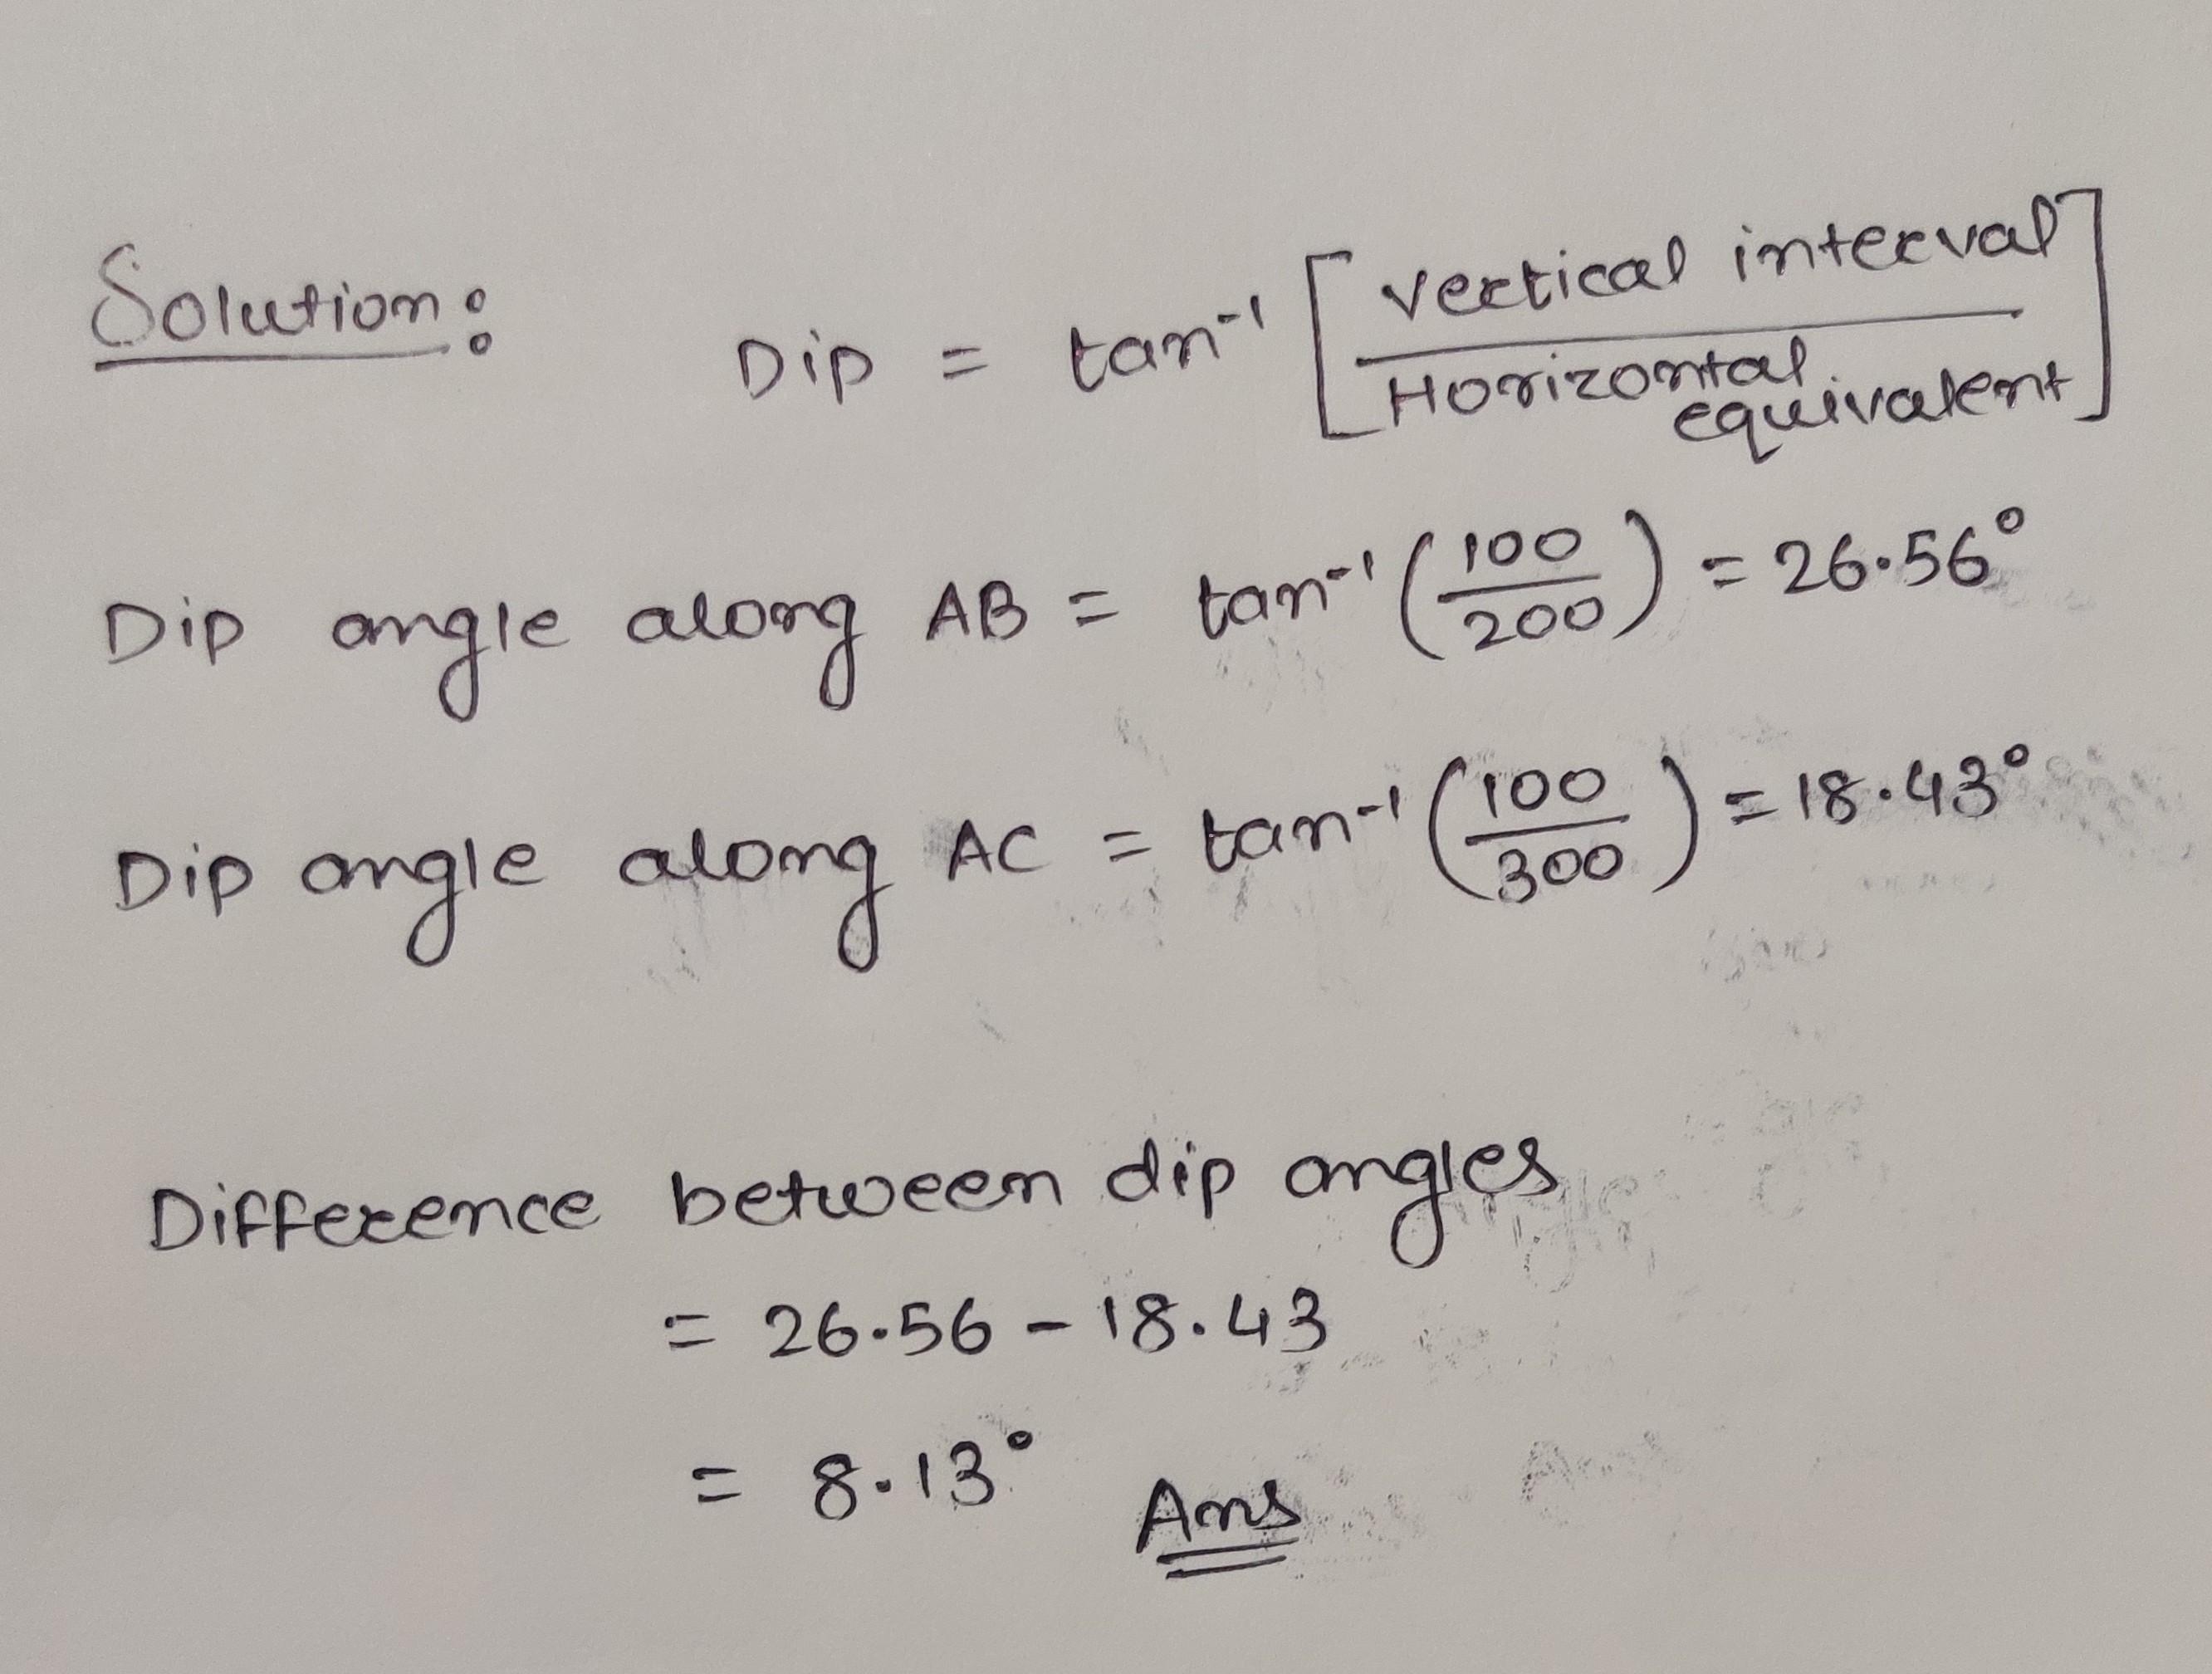 Solution: Dip = tan⁻¹ [Vertical interval / Horizontal equivalent]
Dip angle along AB = tan⁻¹ (100/200) = 26.56°
Dip angle along AC = tan⁻¹ (100/300) = 18.43°
Difference between dip angles
= 26.56 - 18.43
= 8.13° Ans